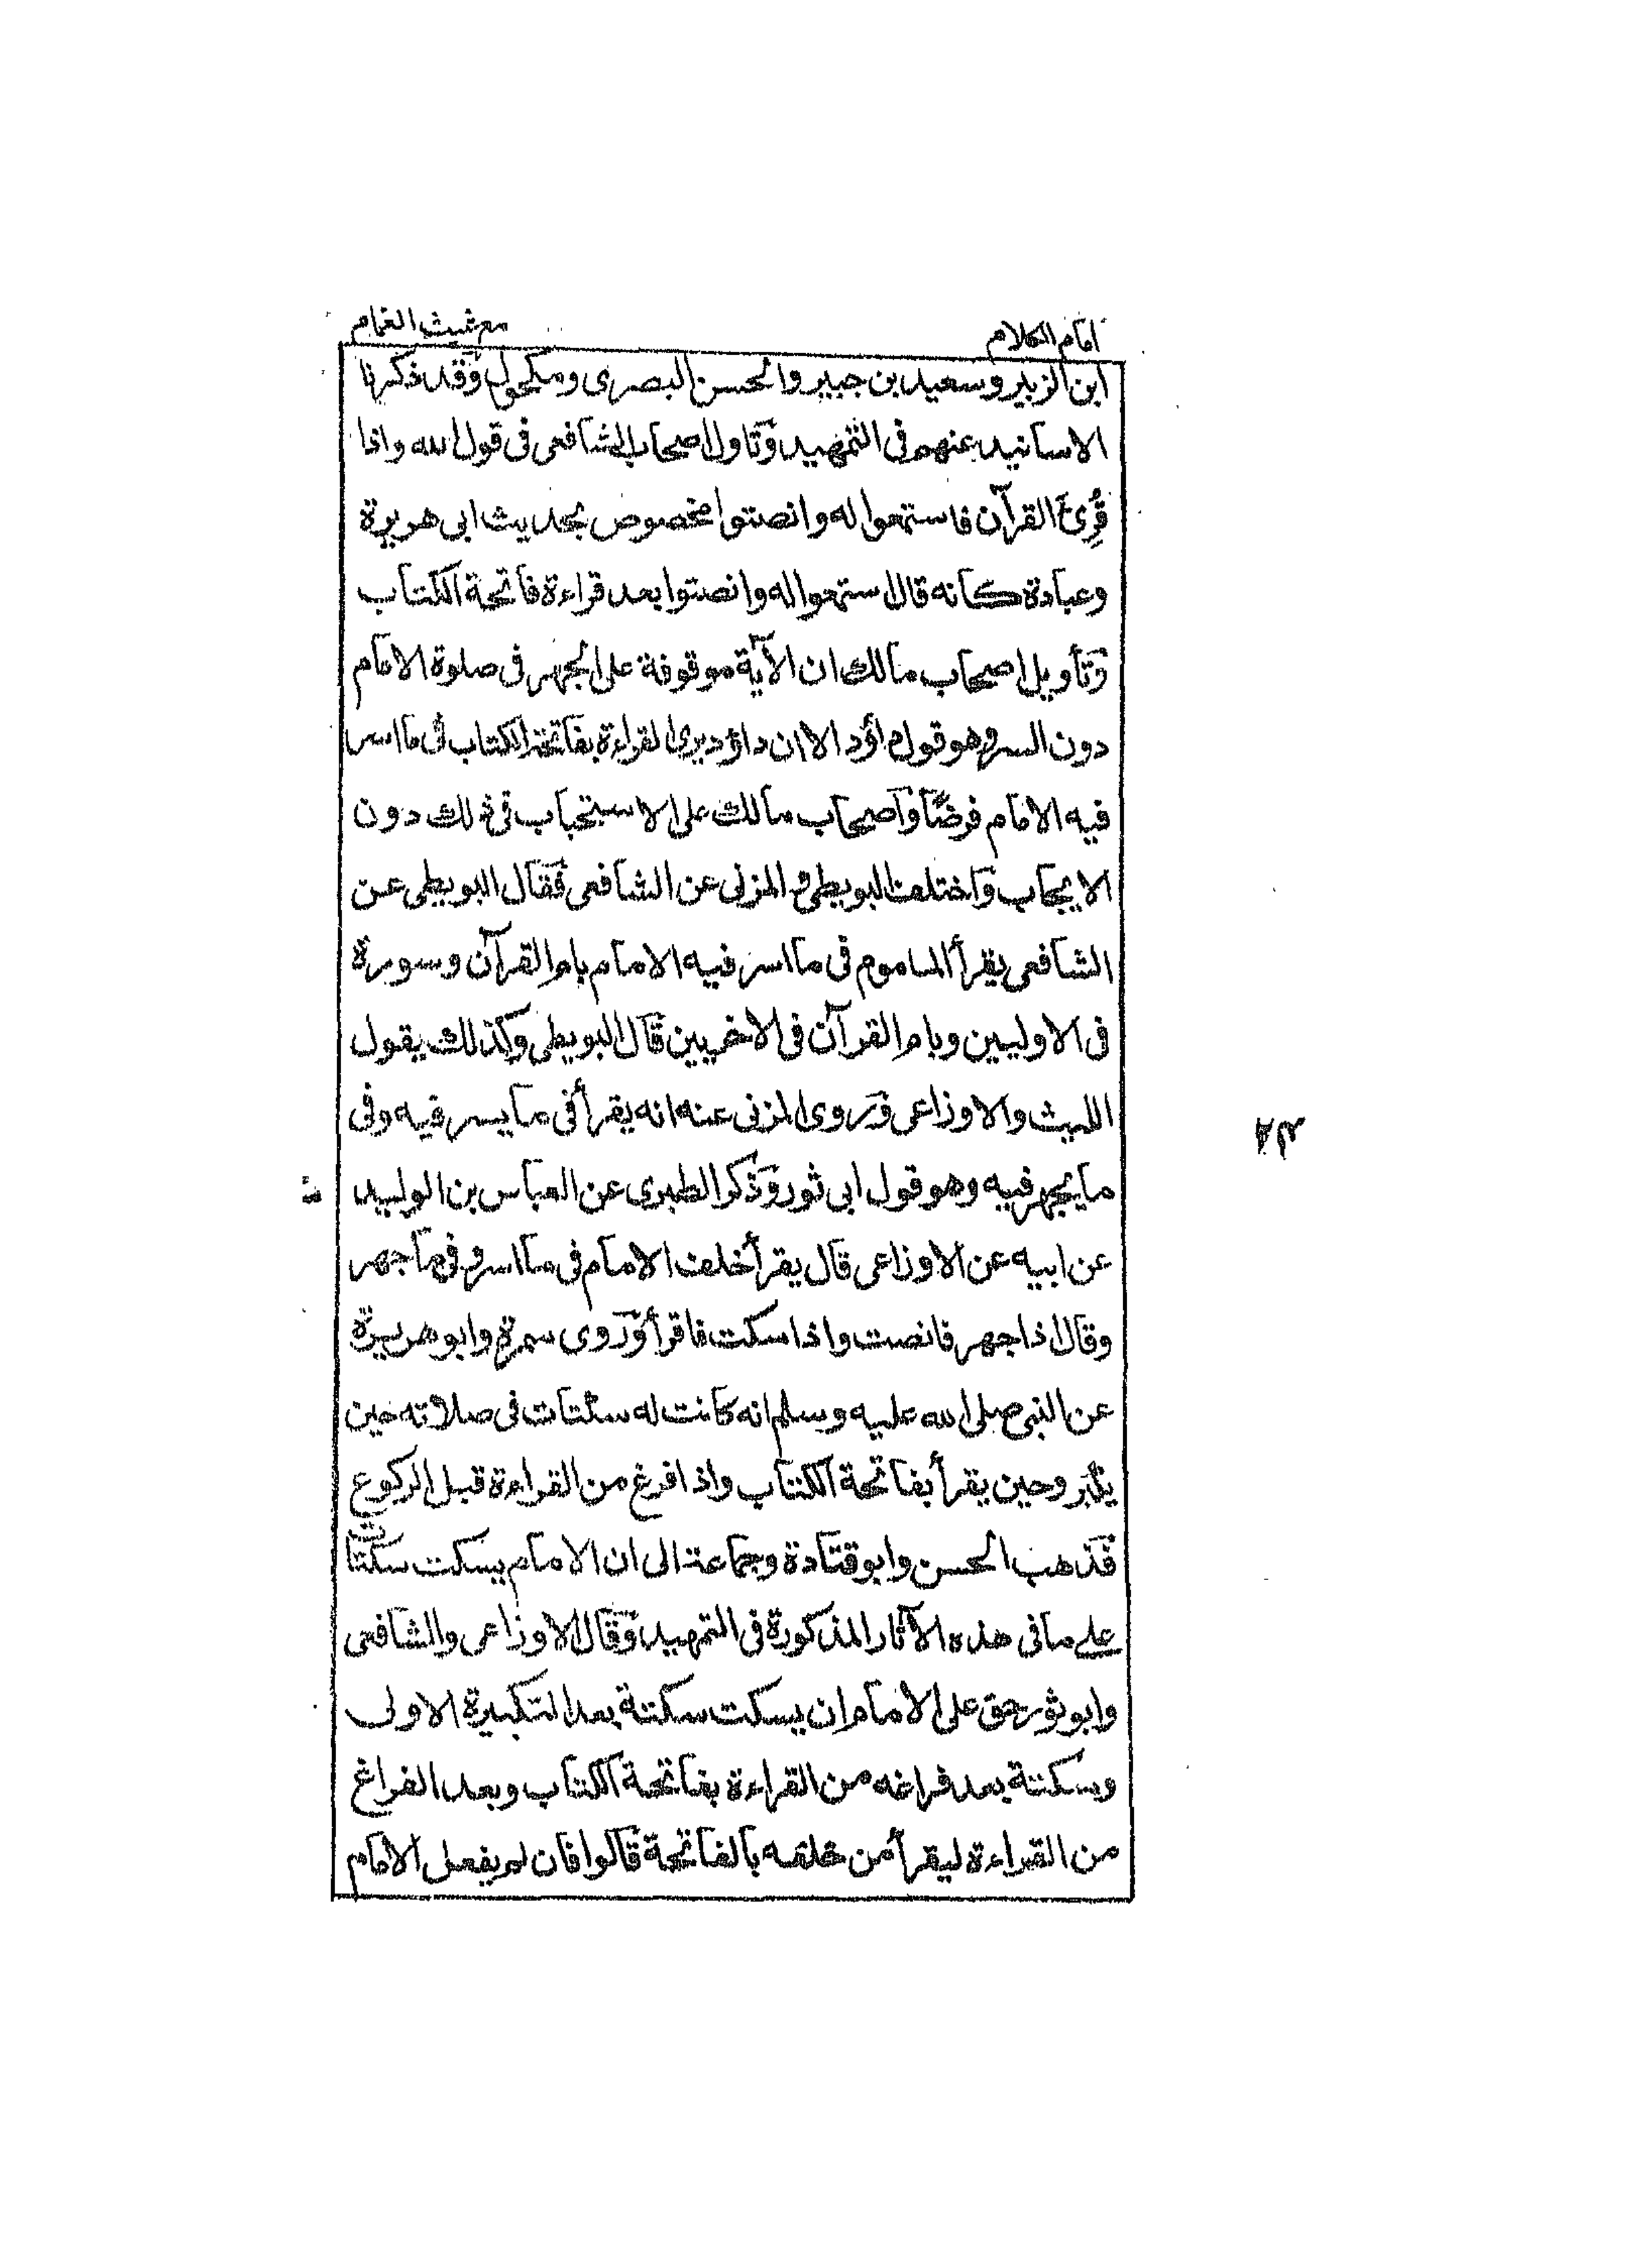 امام الكلام
مع غيث الغمام
ابن الزبير وسعيد بن جبير والحسن البصرى ومكحول وقد ذكرنا
الاسانيد عنهم فى التمهيد وتاول اصحاب الشافعى فى قول الله واذا
قُرِئَ القرآن فاستمعوا له وانصتوا مخصوص بحديث ابى هريرة
وعبادة كانه قال استمعوا له وانصتوا بعد قراءة فاتحة الكتاب
وتأويل اصحاب مالك ان الآية موقوفة على الجهر فى صلوة الامام
دون السر وهو قول داؤد الا ان داؤد يرى القراءة بفاتحة الكتاب فى ما اسر
فيه الامام فرضًا واصحاب مالك على الاستحباب فى ذلك دون
الايجاب واختلف البويطى والمزنى عن الشافعى فقال البويطى عن
الشافعى يقرأ الماموم فى ما اسر فيه الامام بام القرآن وسورة
فى الاوليين وبام القرآن فى الاخريين قال البويطى وكذلك يقول
الليث والاوزاعى وروى المزنى عنه انه يقرأ فى ما يسر فيه وفى
ما يجهر فيه وهو قول ابى ثور وذكر الطبرى عن العباس بن الوليد
عن ابيه عن الاوزاعى قال يقرأ خلف الامام فى ما اسر وفى ما جهر
وقال اذا جهر فانصت واذا سكت فاقرأ وروى سمرة وابو هريرة
عن النبى صلى الله عليه وسلم انه كانت له سكتات فى صلاته حين
يكبر وحين يقرأ بفاتحة الكتاب واذا فرغ من القراءة قبل الركوع
فذهب الحسن وابو قتادة وجماعة الى ان الامام يسكت سكتات
على ما فى هذه الآثار المذكورة فى التمهيد وقال الاوزاعى والشافعى
وابو ثور حق على الامام ان يسكت سكتة بعد التكبيرة الاولى
وسكتة بعد فراغه من القراءة بفاتحة الكتاب وبعد الفراغ
من القراءة ليقرأ من خلفه بالفاتحة قالوا فان لم يفعل الامام